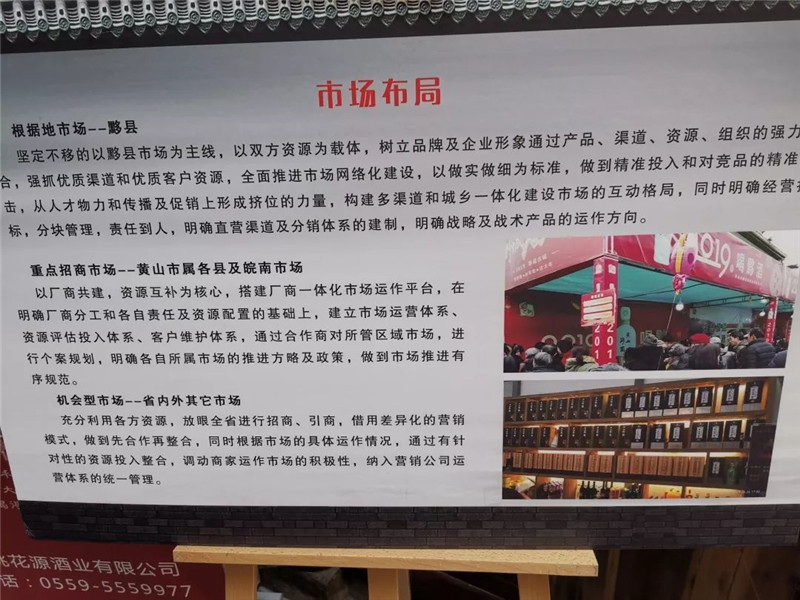 市场布局
根据地市场--黟县
坚定不移的以黟县市场为主线，以双方资源为载体，树立品牌及企业形象通过产品、渠道、资源、组织的强力
合，强抓优质渠道和优质客户资源，全面推进市场网络化建设，以做实做细为标准，做到精准投入和对竞品的精准
击，从人才物力和传播及促销上形成挤位的力量，构建多渠道和城乡一体化建设市场的互动格局，同时明确经营
标，分块管理，责任到人，明确直营渠道及分销体系的建制，明确战略及战术产品的运作方向。
重点招商市场--黄山市属各县及皖南市场
以厂商共建，资源互补为核心，搭建厂商一体化市场运作平台，在
明确厂商分工和各自责任及资源配置的基础上，建立市场运营体系、
资源评估投入体系、客户维护体系，通过合作商对所管区域市场，进
行个案规划，明确各自所属市场的推进方略及政策，做到市场推进有
序规范。
机会型市场--省内外其它市场
充分利用各方资源，放眼全省进行招商、引商，借用差异化的营销
模式，做到先合作再整合，同时根据市场的具体运作情况，通过有针
对性的资源投入整合，调动商家运作市场的积极性，纳入营销公司运
营体系的统一管理。
2019
花源酒业有限公司
话：0559-5559977